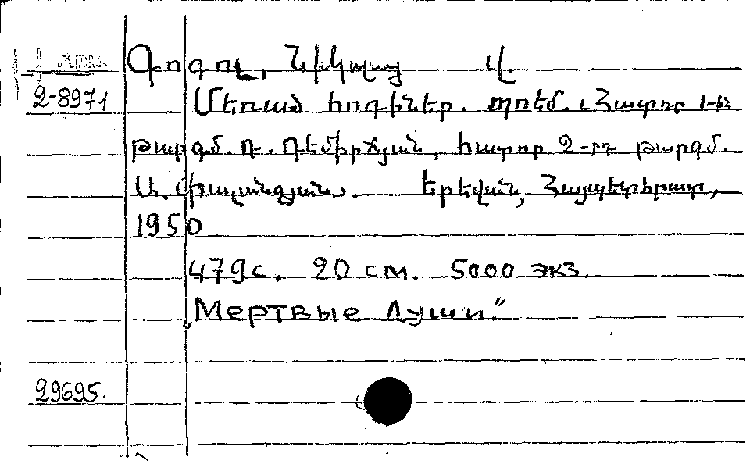 Գոգոլ, Նիկալայ Վ.
2-8971 Մեռած հոգիներ. պոեմ. Հատոր 1-ին
թարգմ. Դ. Դեմիրճյան, հատոր 2-րդ թարգմ.
Երեվան, Հայպետհրատ,
1950
479 с. 20 см. 5000 экз.
„Мертвые души"
29695.